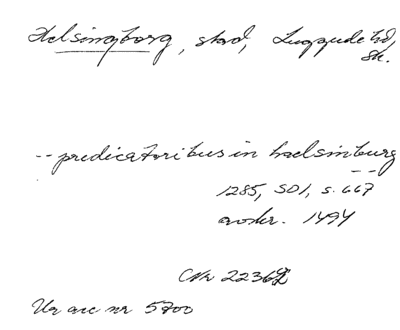 Helsingborg, stad, Luggude hd,
Sk.
-- predicatoribus in haelsinburg
1285, SD1, s. 667
avskr. 1494
CNr 2236
Ur acc nr 5700